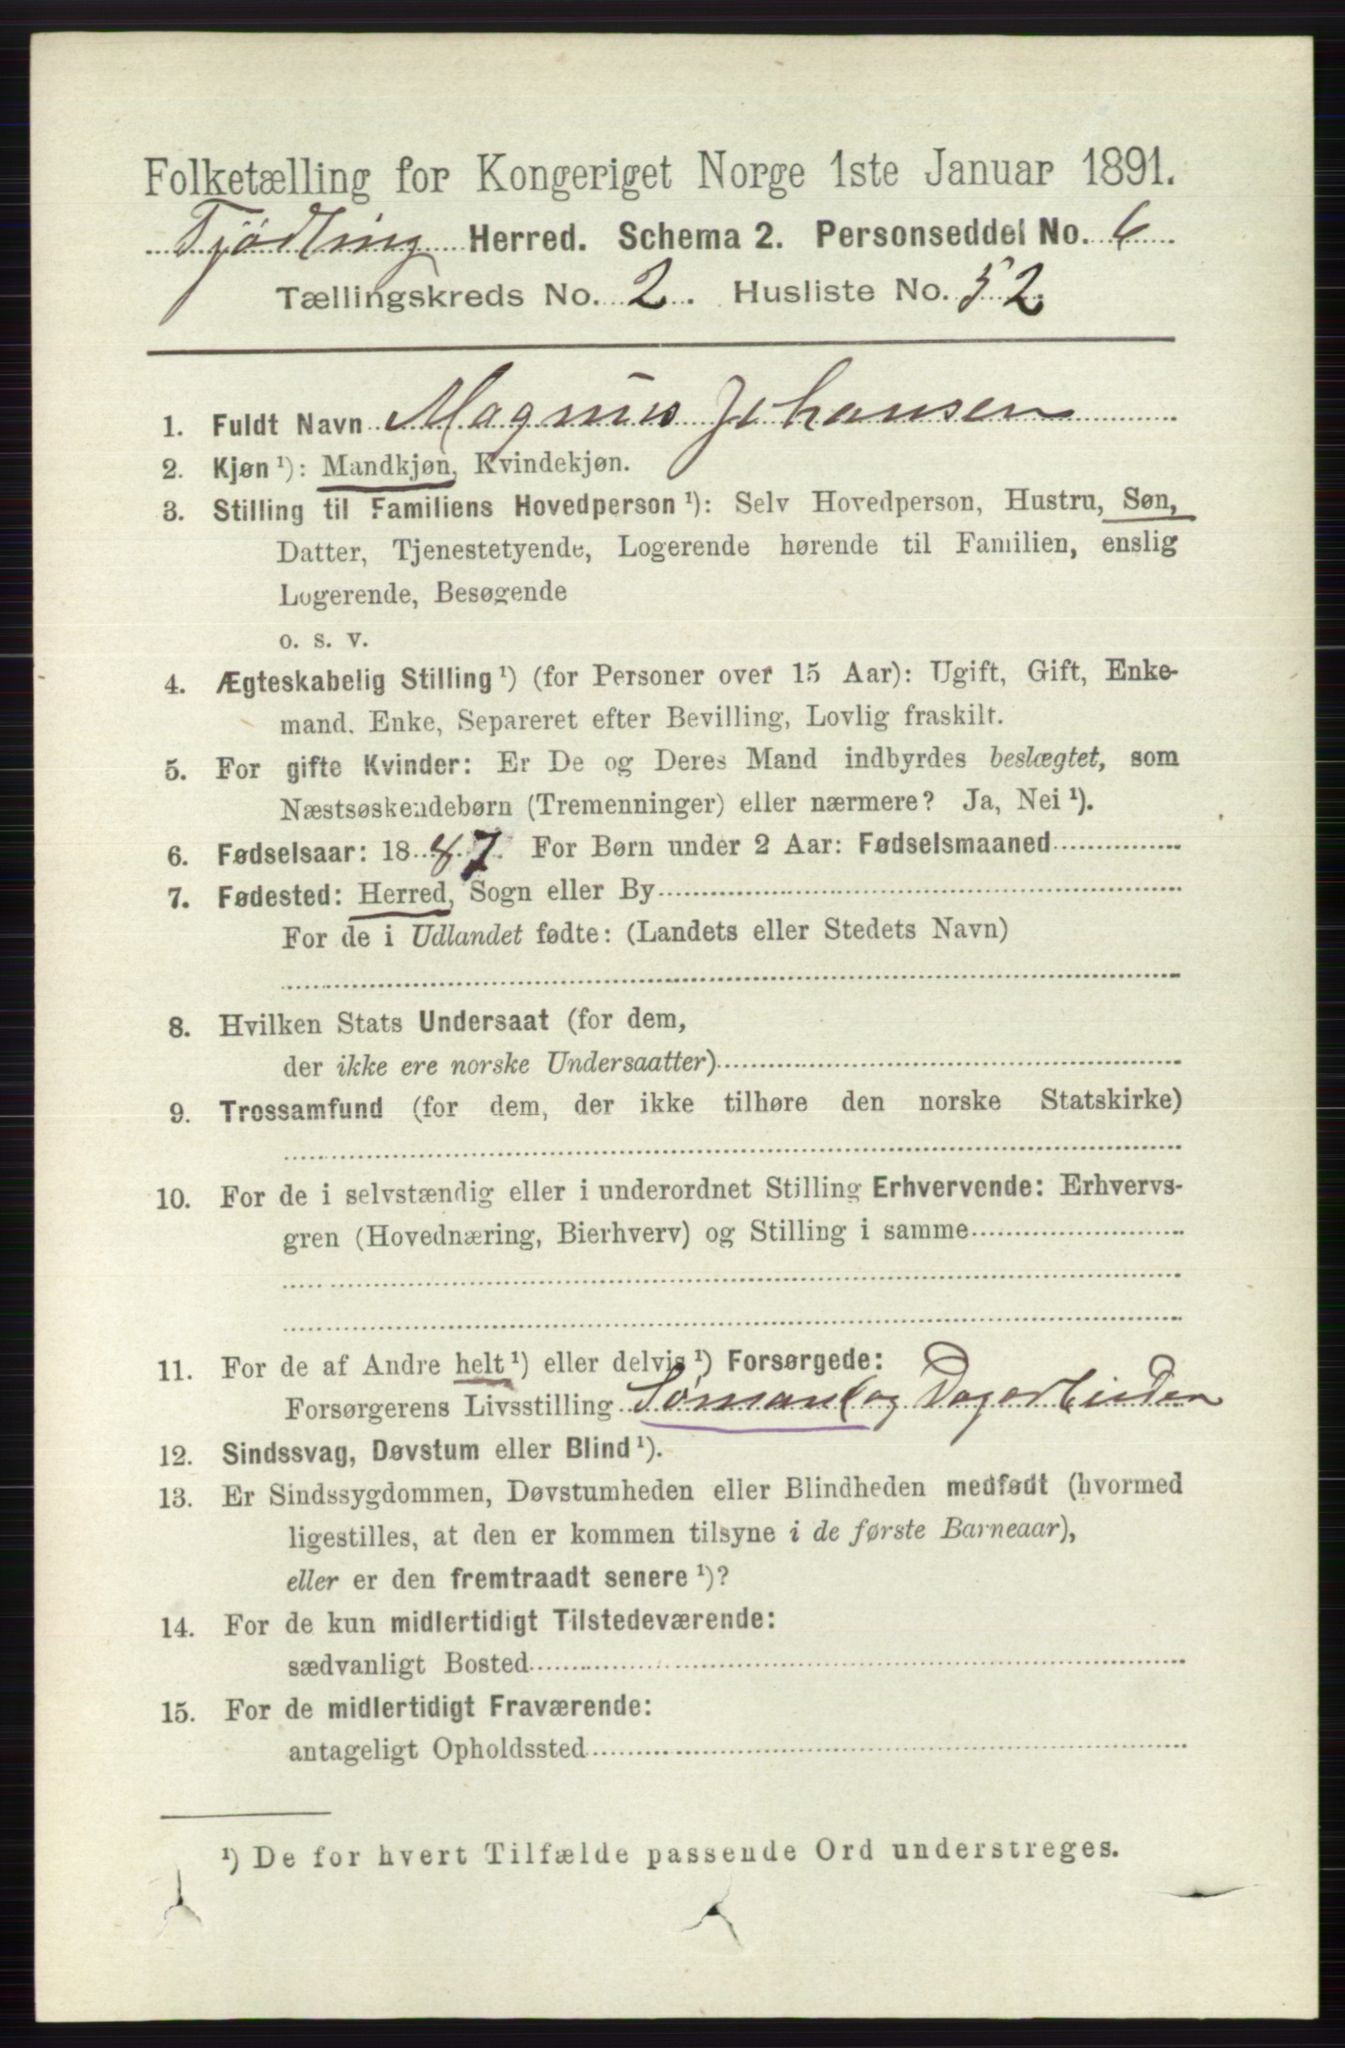 Folketælling for Kongeriget Norge 1ste Januar 1891.
Tjødling Herred. Schema 2. Personseddel No. 6
Tællingskreds No. 2. Husliste No. 52
1. Fuldt Navn Magnus Johansen
2. Kjøn ¹): Mandkjøn, Kvindekjøn.
3. Stilling til Familiens Hovedperson ¹): Selv Hovedperson, Hustru, Søn,
Datter, Tjenestetyende, Logerende hørende til Familien, enslig
Logerende, Besøgende
o. s. v.
4. Ægteskabelig Stilling ¹) (for Personer over 15 Aar): Ugift, Gift, Enke-
mand, Enke, Separeret efter Bevilling, Lovlig fraskilt.
5. For gifte Kvinder: Er De og Deres Mand indbyrdes beslægtet, som
Næstsøskendebørn (Tremenninger) eller nærmere? Ja, Nei ¹).
6. Fødselsaar: 1887. For Børn under 2 Aar: Fødselsmaaned
7. Fødested: Herred, Sogn eller By
For de i Udlandet fødte: (Landets eller Stedets Navn)
8. Hvilken Stats Undersaat (for dem,
der ikke ere norske Undersaatter)
9. Trossamfund (for dem, der ikke tilhøre den norske Statskirke)
10. For de i selvstændig eller i underordnet Stilling Erhvervende: Erhvervs-
gren (Hovednæring, Bierhverv) og Stilling i samme
11. For de af Andre helt ¹) eller delvis ¹) Forsørgede:
Forsørgerens Livsstilling Sømand og Dagarbeider
12. Sindssvag, Døvstum eller Blind ¹).
13. Er Sindssygdommen, Døvstumheden eller Blindheden medfødt (hvormed
ligestilles, at den er kommen tilsyne i de første Barneaar),
eller er den fremtraadt senere ¹)?
14. For de kun midlertidigt Tilstedeværende:
sædvanligt Bosted
15. For de midlertidigt Fraværende:
antageligt Opholdssted
¹) De for hvert Tilfælde passende Ord understreges.